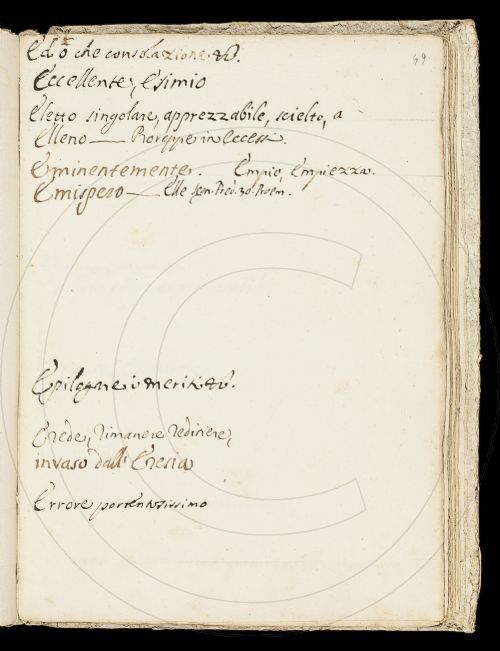 Ed o che consolazione &c. 49
Eccellente, Esimio
Eletto singolare, apprezzabile, scielto, a
Elleno — in Eccess.
Eminentemente. Empio, Empiezza.
Emispero — Elle Pred. 30. Proem.
Epilogare i meriti &c.
Erede, rimanere
invaso dall'Eresia
Errore portentosissimo